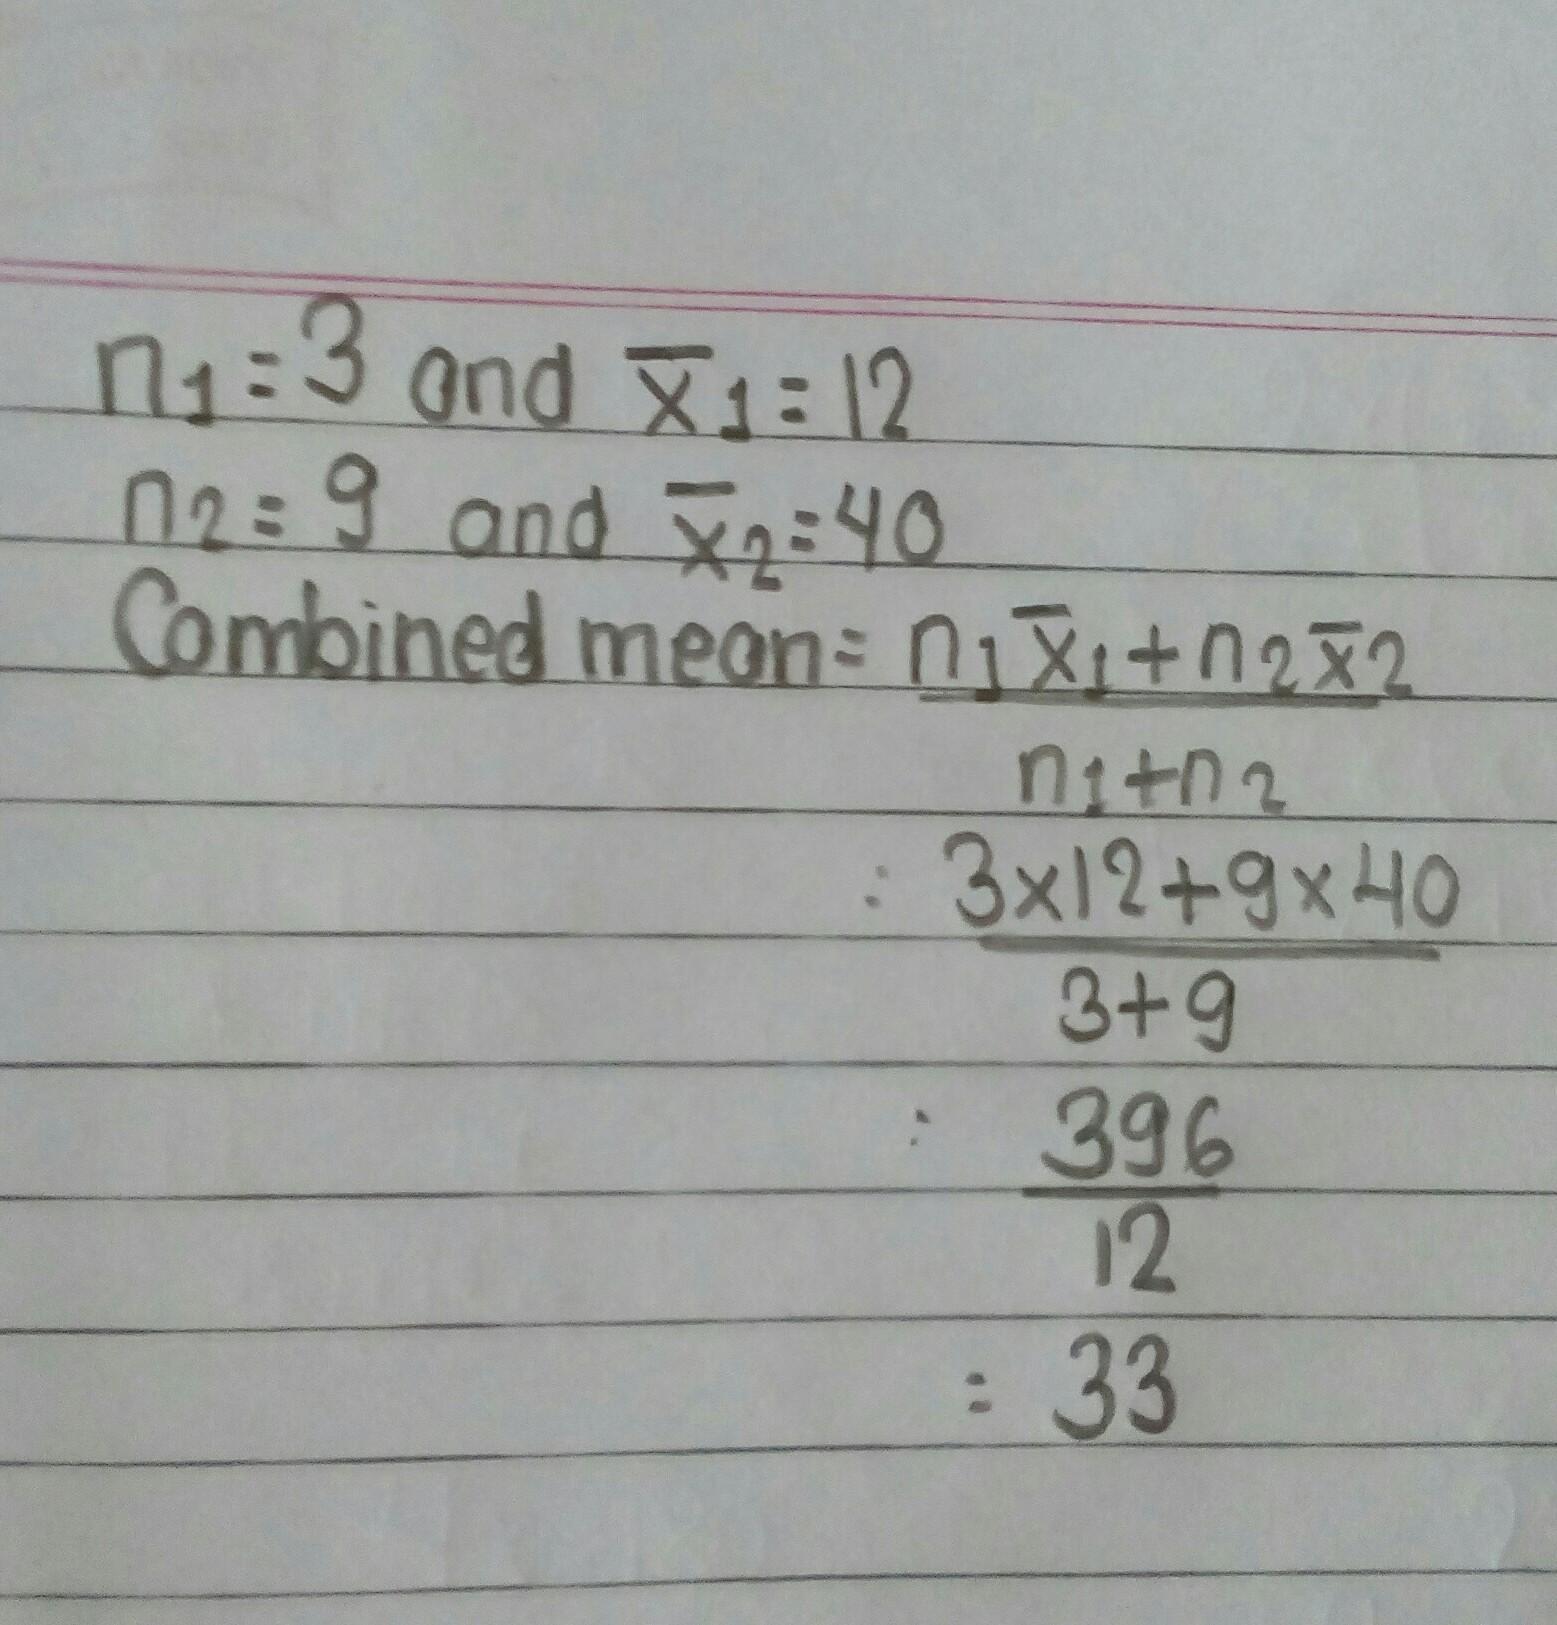 n1=3 and x̄1=12
n2=9 and x̄2=40
Combined mean= n1x̄1+n2x̄2
n1+n2
: 3x12+9x40
3+9
: 396
12
= 33